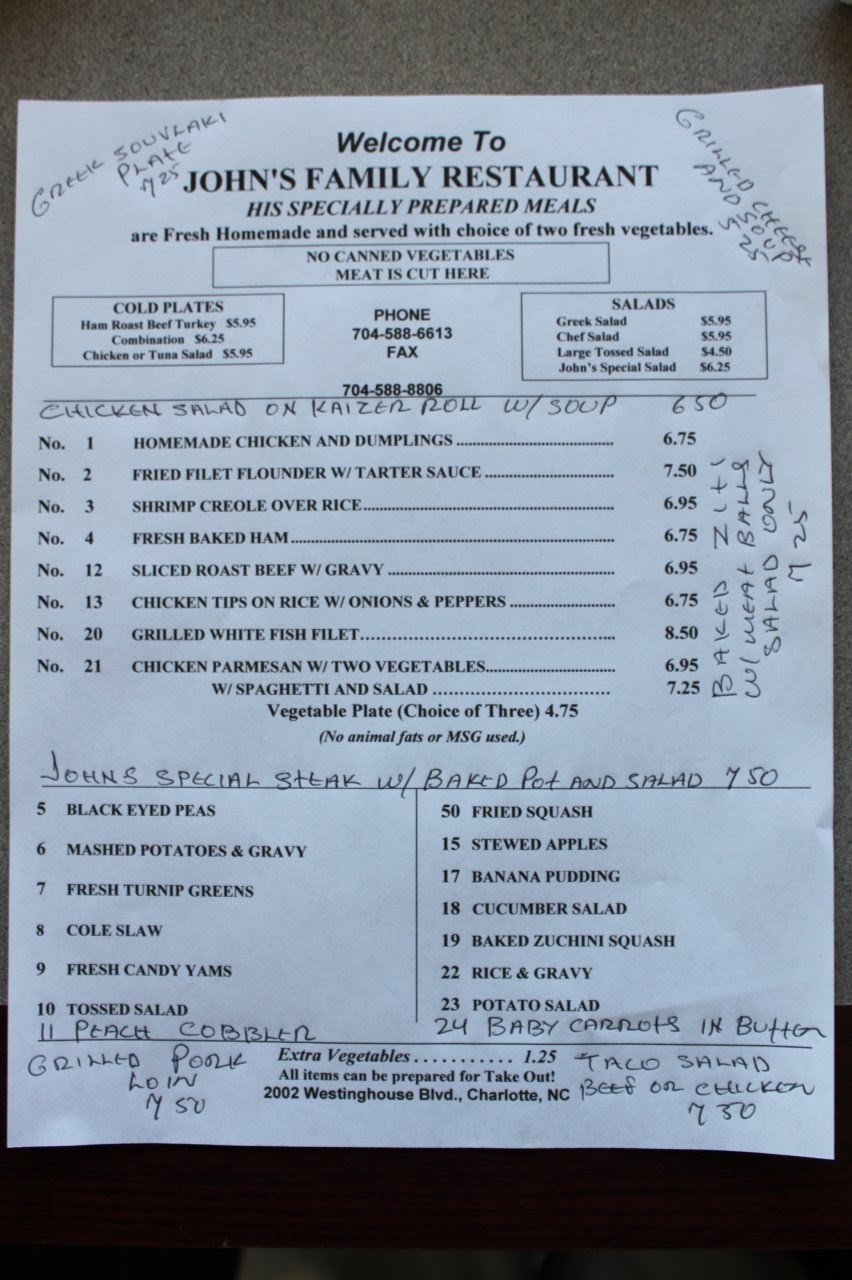 GREEK SOUVLAKI
PLATE
7 25
GRILLED CHEESE
AND SOUP
5 25
Welcome To
JOHN'S FAMILY RESTAURANT
HIS SPECIALLY PREPARED MEALS
are Fresh Homemade and served with choice of two fresh vegetables.
NO CANNED VEGETABLES
MEAT IS CUT HERE
COLD PLATES
Ham Roast Beef Turkey $5.95
Combination $6.25
Chicken or Tuna Salad $5.95
PHONE
704-588-6613
FAX
704-588-8806
SALADS
Greek Salad $5.95
Chef Salad $5.95
Large Tossed Salad $4.50
John's Special Salad $6.25
CHICKEN SALAD ON KAIZER ROLL W/ SOUP 6 50
No. 1 HOMEMADE CHICKEN AND DUMPLINGS ........ 6.75
No. 2 FRIED FILET FLOUNDER W/ TARTER SAUCE ........ 7.50
No. 3 SHRIMP CREOLE OVER RICE........ 6.95
No. 4 FRESH BAKED HAM ........ 6.75
No. 12 SLICED ROAST BEEF W/ GRAVY ........ 6.95
No. 13 CHICKEN TIPS ON RICE W/ ONIONS & PEPPERS ........ 6.75
No. 20 GRILLED WHITE FISH FILET........ 8.50
No. 21 CHICKEN PARMESAN W/ TWO VEGETABLES........ 6.95
W/ SPAGHETTI AND SALAD ........ 7.25
BAKED ZITI
W/ MEAT BALLS
SALAD ONLY
7 25
Vegetable Plate (Choice of Three) 4.75
(No animal fats or MSG used.)
JOHNS SPECIAL STEAK W/ BAKED POT AND SALAD 7 50
5 BLACK EYED PEAS
6 MASHED POTATOES & GRAVY
7 FRESH TURNIP GREENS
8 COLE SLAW
9 FRESH CANDY YAMS
10 TOSSED SALAD
11 PEACH COBBLER
50 FRIED SQUASH
15 STEWED APPLES
17 BANANA PUDDING
18 CUCUMBER SALAD
19 BAKED ZUCHINI SQUASH
22 RICE & GRAVY
23 POTATO SALAD
24 BABY CARROTS IN BUTTER
GRILLED PORK
LOIN
7 50
Extra Vegetables . . . . . . . . . . . 1.25
All items can be prepared for Take Out!
2002 Westinghouse Blvd., Charlotte, NC
TACO SALAD
BEEF OR CHICKEN
7 50